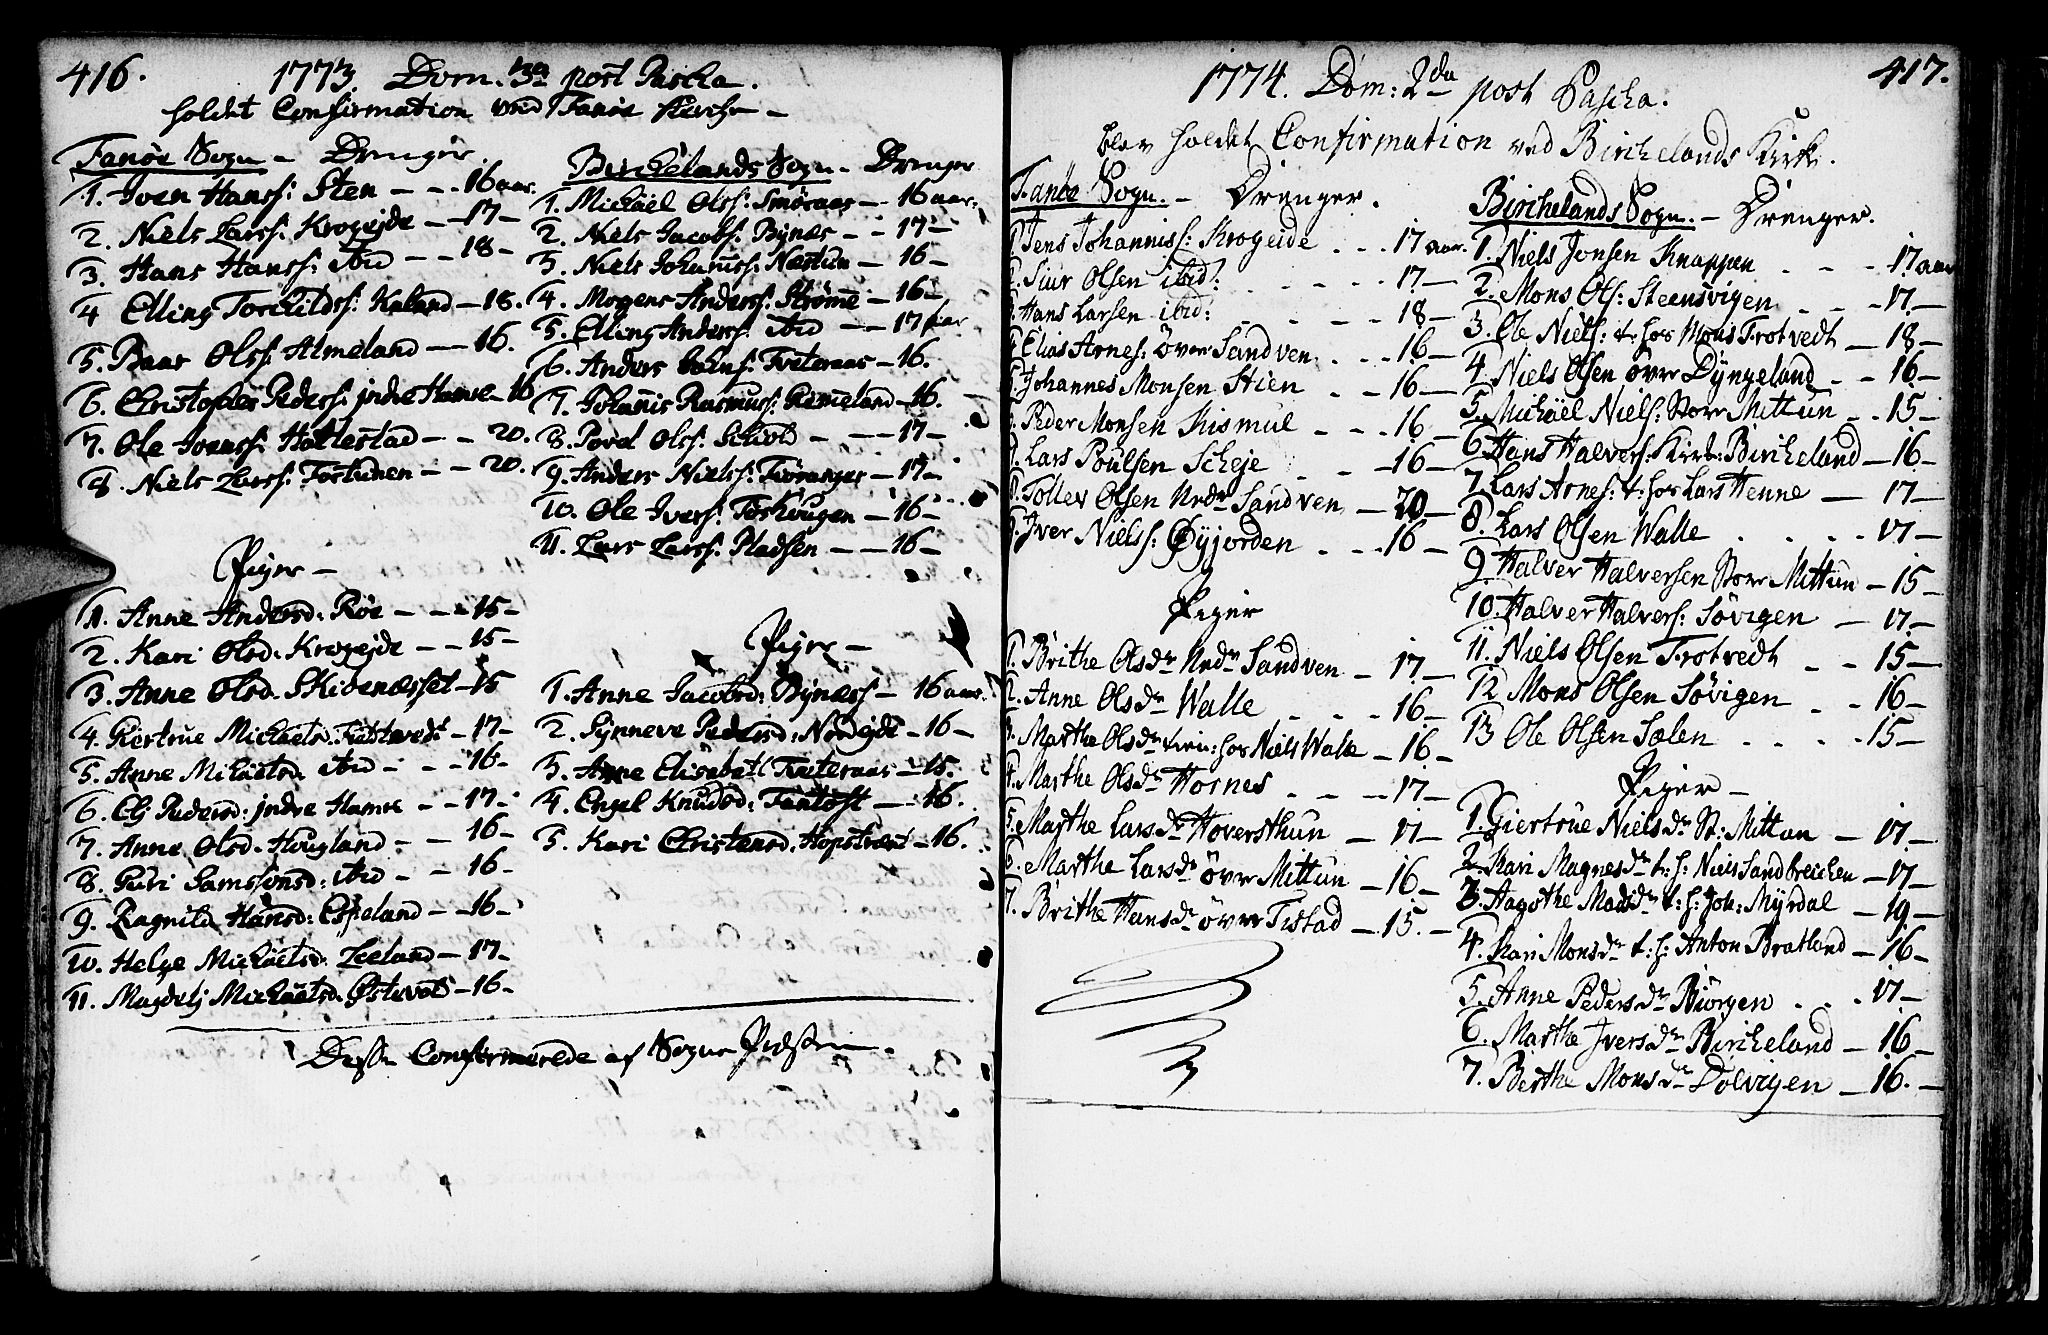 416.
1773. Dom. 3a post Pascha.
holdet Confirmation ved Fanøe Kirche
Fanøe Sogn – Drenger.
1. Iven Hanss: Sten – 16 aar.
2. Niels Larss: Krogejde – 17 –
3. Hans Hanss: ibid – 18 –
4 Elling Torchildss: Kaland – 18.
5. Baar Olss: Almeland – 16.
6. Christopher Pederss: jndre Hamre – 16
7. Ole Ivers: Hollestad – 20.
8. Niels Larss: Fortunen – 20.
Piger –
1. Anne Andersd: Røe – 15 –
2. Kari Olsd. Krogejde – 15 –
3. Anne Olsd. Skibenæsset – 15
4. Giertrue Michaelsd. – 17 –
5. Anne Michaelsd. ibid – 16 –
6. Elj Pedersd: jndre Hamre – 17 –
7. Anne Olsd. Hougland – 16 –
8. Guri Samssonsd: ibid – 16 –
9. Ragnild Hansd: Espeland – 16 –
10. Helge Michaelsd. Leeland – 17 –
11. Magdelj Michaelsd. Østevold – 16 –
Birchelands Sogn. – Drenger
1. Michael Olss: Smøraas – 16 aar.
2. Niels Jacobs: Bynæs – 17 –
3. Niels Johanss: Nestun – 16 –
4. Mogens Anderss: Strømme – 16 –
5. Elling Anders: ibid – 17 aar
6. Anders Johns: Tveteraas – 16.
7. Johannis Rasmuss: Remeland – 16.
8. Povel Olss: Schold – 17 –
9. Anders Nielss: Tvøranger – 17 –
10. Ole Ivers: Torshougen – 16 –
11. Lars Larss: Pladsen – 16 –
Piger –
1. Anne Jacobsd: Bynæss – 16 aar.
2. Synneve Pedersd: Nordejde – 16 –
3. Anne Elisabeth Tveteraas – 15.
4. Engel Knudsd: Fantoft – 16.
5. Kari Christensd. Hopstræt – 16.
Disse Confirmerede af Sogne Præsten.
417.
1774. Dom: 2da post Pascha.
blev holdet Confirmation ved Birchelands Kirke.
Fanøe Sogn. – Drenger.
1. Jens Johanniss: Krogeide – 17 aar.
2. Siur Olsen ibid: – 17 –
3. Hans Larsen ibid: – 18 –
4. Elias Arnes: över Sandven – 16 –
5. Johannes Monsen Stien – 16 –
6. Peder Monsen Kismul – 16 –
7. Lars Poulsen Scheje – 16 –
8. Tollev Olsen Nedr Sandven – 20 –
9. Jver Nielss: Öyjorden – 16 –
Piger
1. Brithe Olsdr Nedr Sandven – 17 –
2. Anne Olsdr Walle – 16 –
3. Marthe Olsdr tien: hos Niels Walle – 16 –
4. Marthe Olsdr Hornes – 17 –
5. Marthe Larsdr Hoversthun – 17 –
6. Marthe Larsdr övre Mittun – 16 –
7. Brithe Hansdr övre Tistad – 15. –
Birchelands Sogn. – Drenger.
1. Niels Jonsen Knappen – 17 aar
2. Mons Ols: Steensvigen – 17 –
3. Ole Niels: t: hos Mons Trotvedt – 18 –
4. Niels Olsen övre Dyngeland – 16 –
5. Michael Niels: Store Mittun – 15 –
6. Hans Halvers: Kirk: Bircheland – 16 –
7. Lars Arnes: t: hos Lars Henne – 17 –
8. Lars Olsen Walle – 17 –
9. Halver Halversen Store Mittun – 15 –
10. Halver Halvers: Sövigen – 17 –
11. Niels Olsen Trotvedt – 15 –
12 Mons Olsen Sövigen – 16 –
13 Ole Olsen Sælen – 15 –
Piger –
1. Giertrue Nielsdr St: Mittun – 17 –
2. Kari Magnesdr t: h: Niels Sandbreichen – 17 –
3. Aagothe Madsdr t: h: Joh: Myrdal – 19 –
4. Kari Monsdr t: h: Anton Bratland – 16 –
5. Anne Pedersdr Biörgen – 17 –
6. Marthe Jversdr Bircheland – 16 –
7. Birthe Monsdr Dolvigen – 16. –